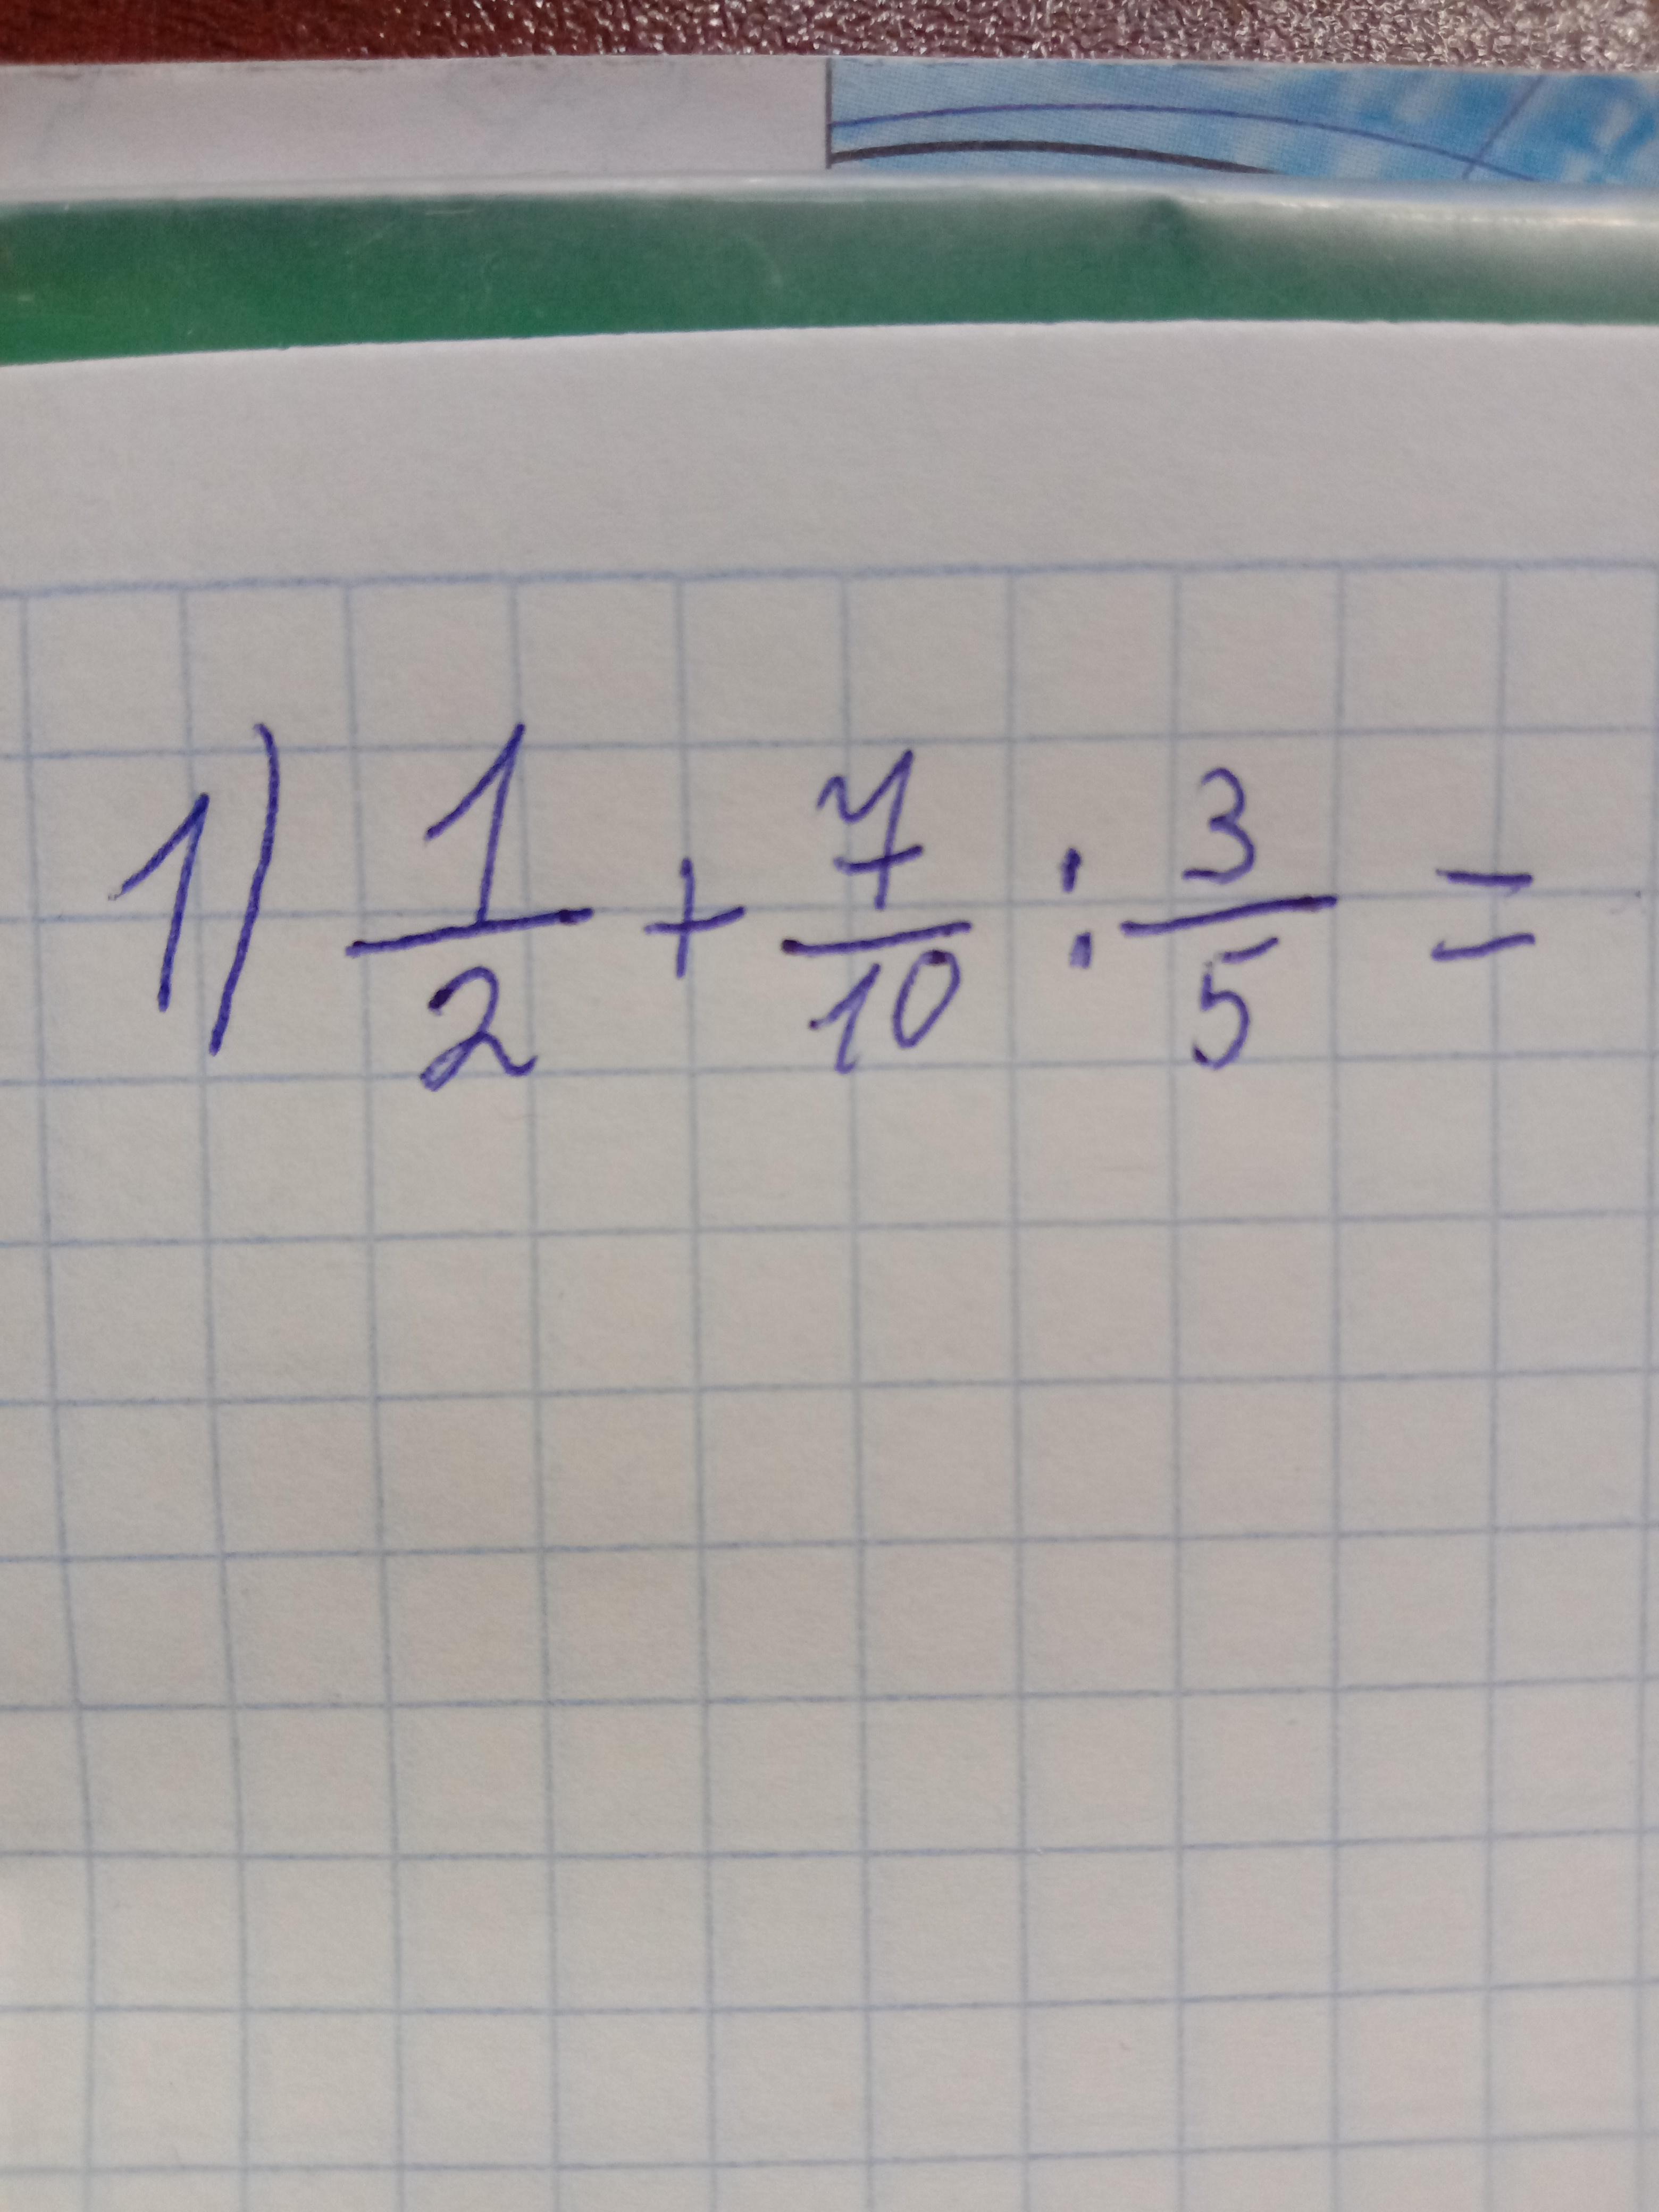 1) 1/2 + 7/10 : 3/5 =